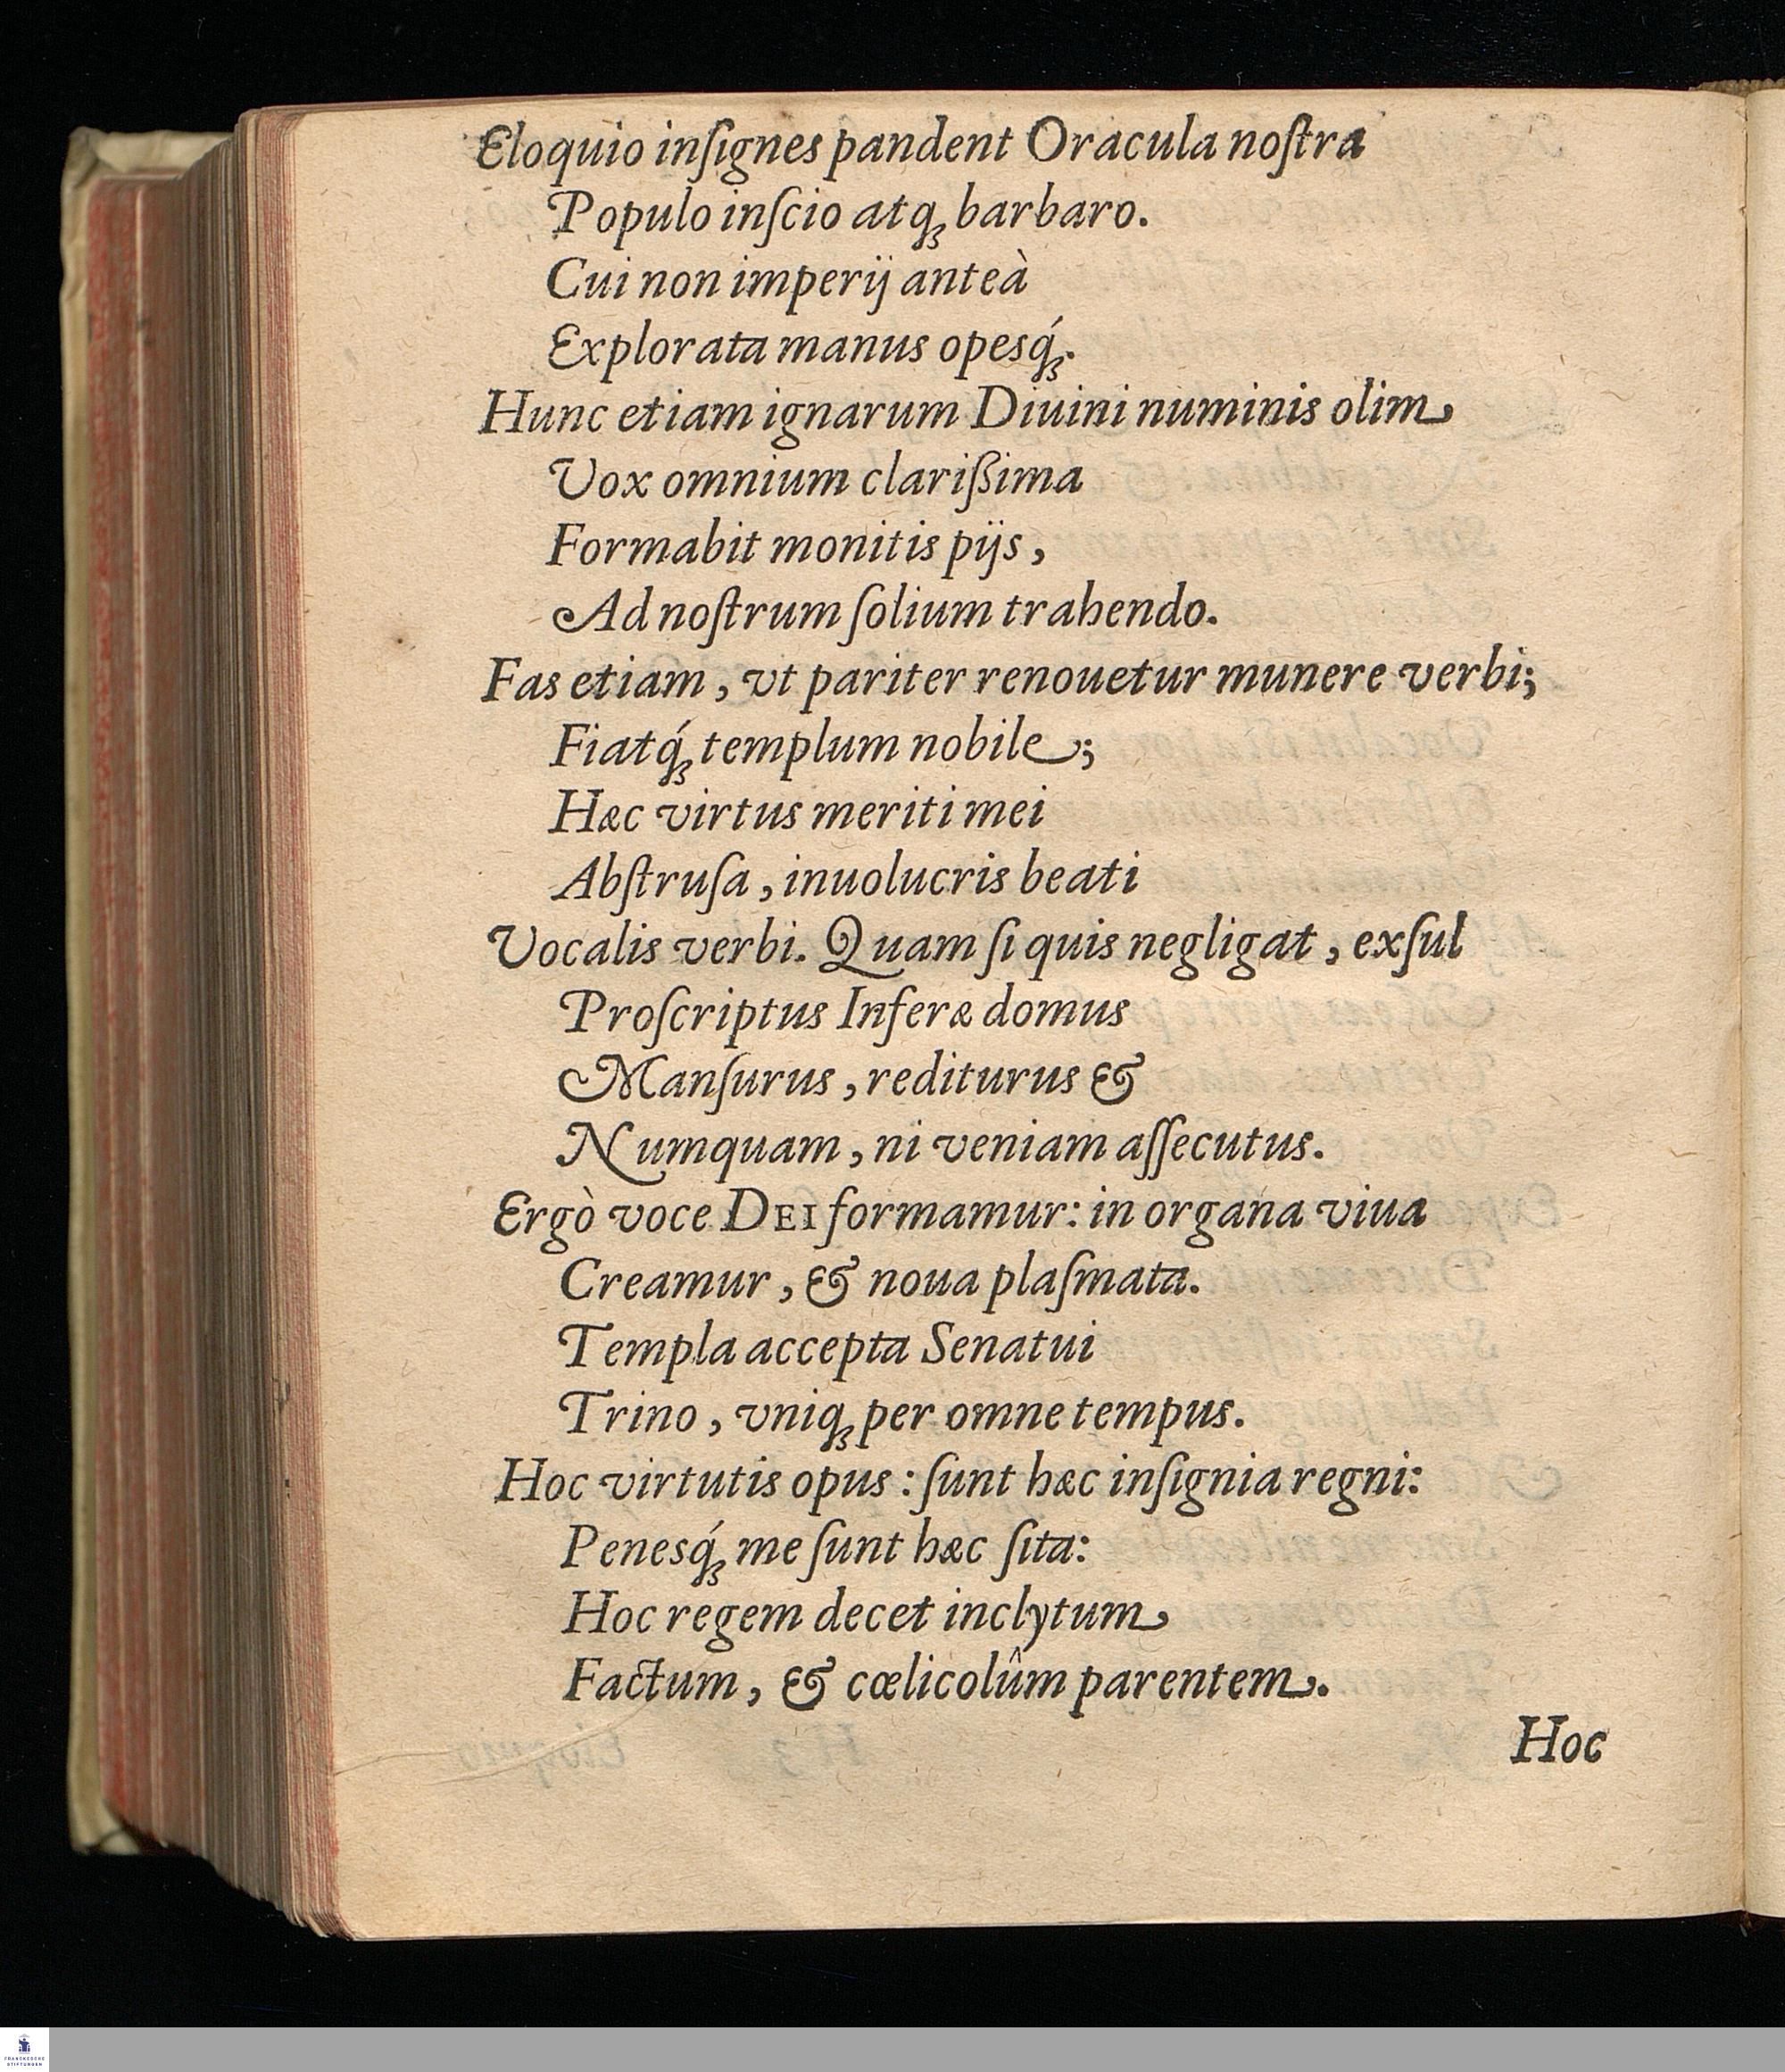 Eloquio inſignes pandent Oracula noſtra
Populo inſcio atq́ꝫ barbaro.
Cui non imperij anteà
Explorata manus opesq́ꝫ.
Hunc etiam ignarum Diuini numinis olim
Vox omnium clarißima
Formabit monitis pijs,
Ad noſtrum ſolium trahendo.
Fas etiam, vt pariter renouetur munere verbi;
Fiatq́ꝫ templum nobile;
Hæc virtus meriti mei
Abſtruſa, inuolucris beati
Vocalis verbi. Quam ſi quis negligat, exſul
Proſcriptus Inferæ domus
Manſurus, rediturus &
Numquam, ni veniam aſſecutus.
Ergò voce DEI formamur: in organa viua
Creamur, & noua plaſmata.
Templa accepta Senatui
Trino, vniqꝫ per omne tempus.
Hoc virtutis opus: ſunt hæc inſignia regni:
Penesq́ꝫ me ſunt hæc ſita:
Hoc regem decet inclytum
Factum, & cœlicolûm parentem.
Hoc
FRANCKESCHE
STIFTUNGEN